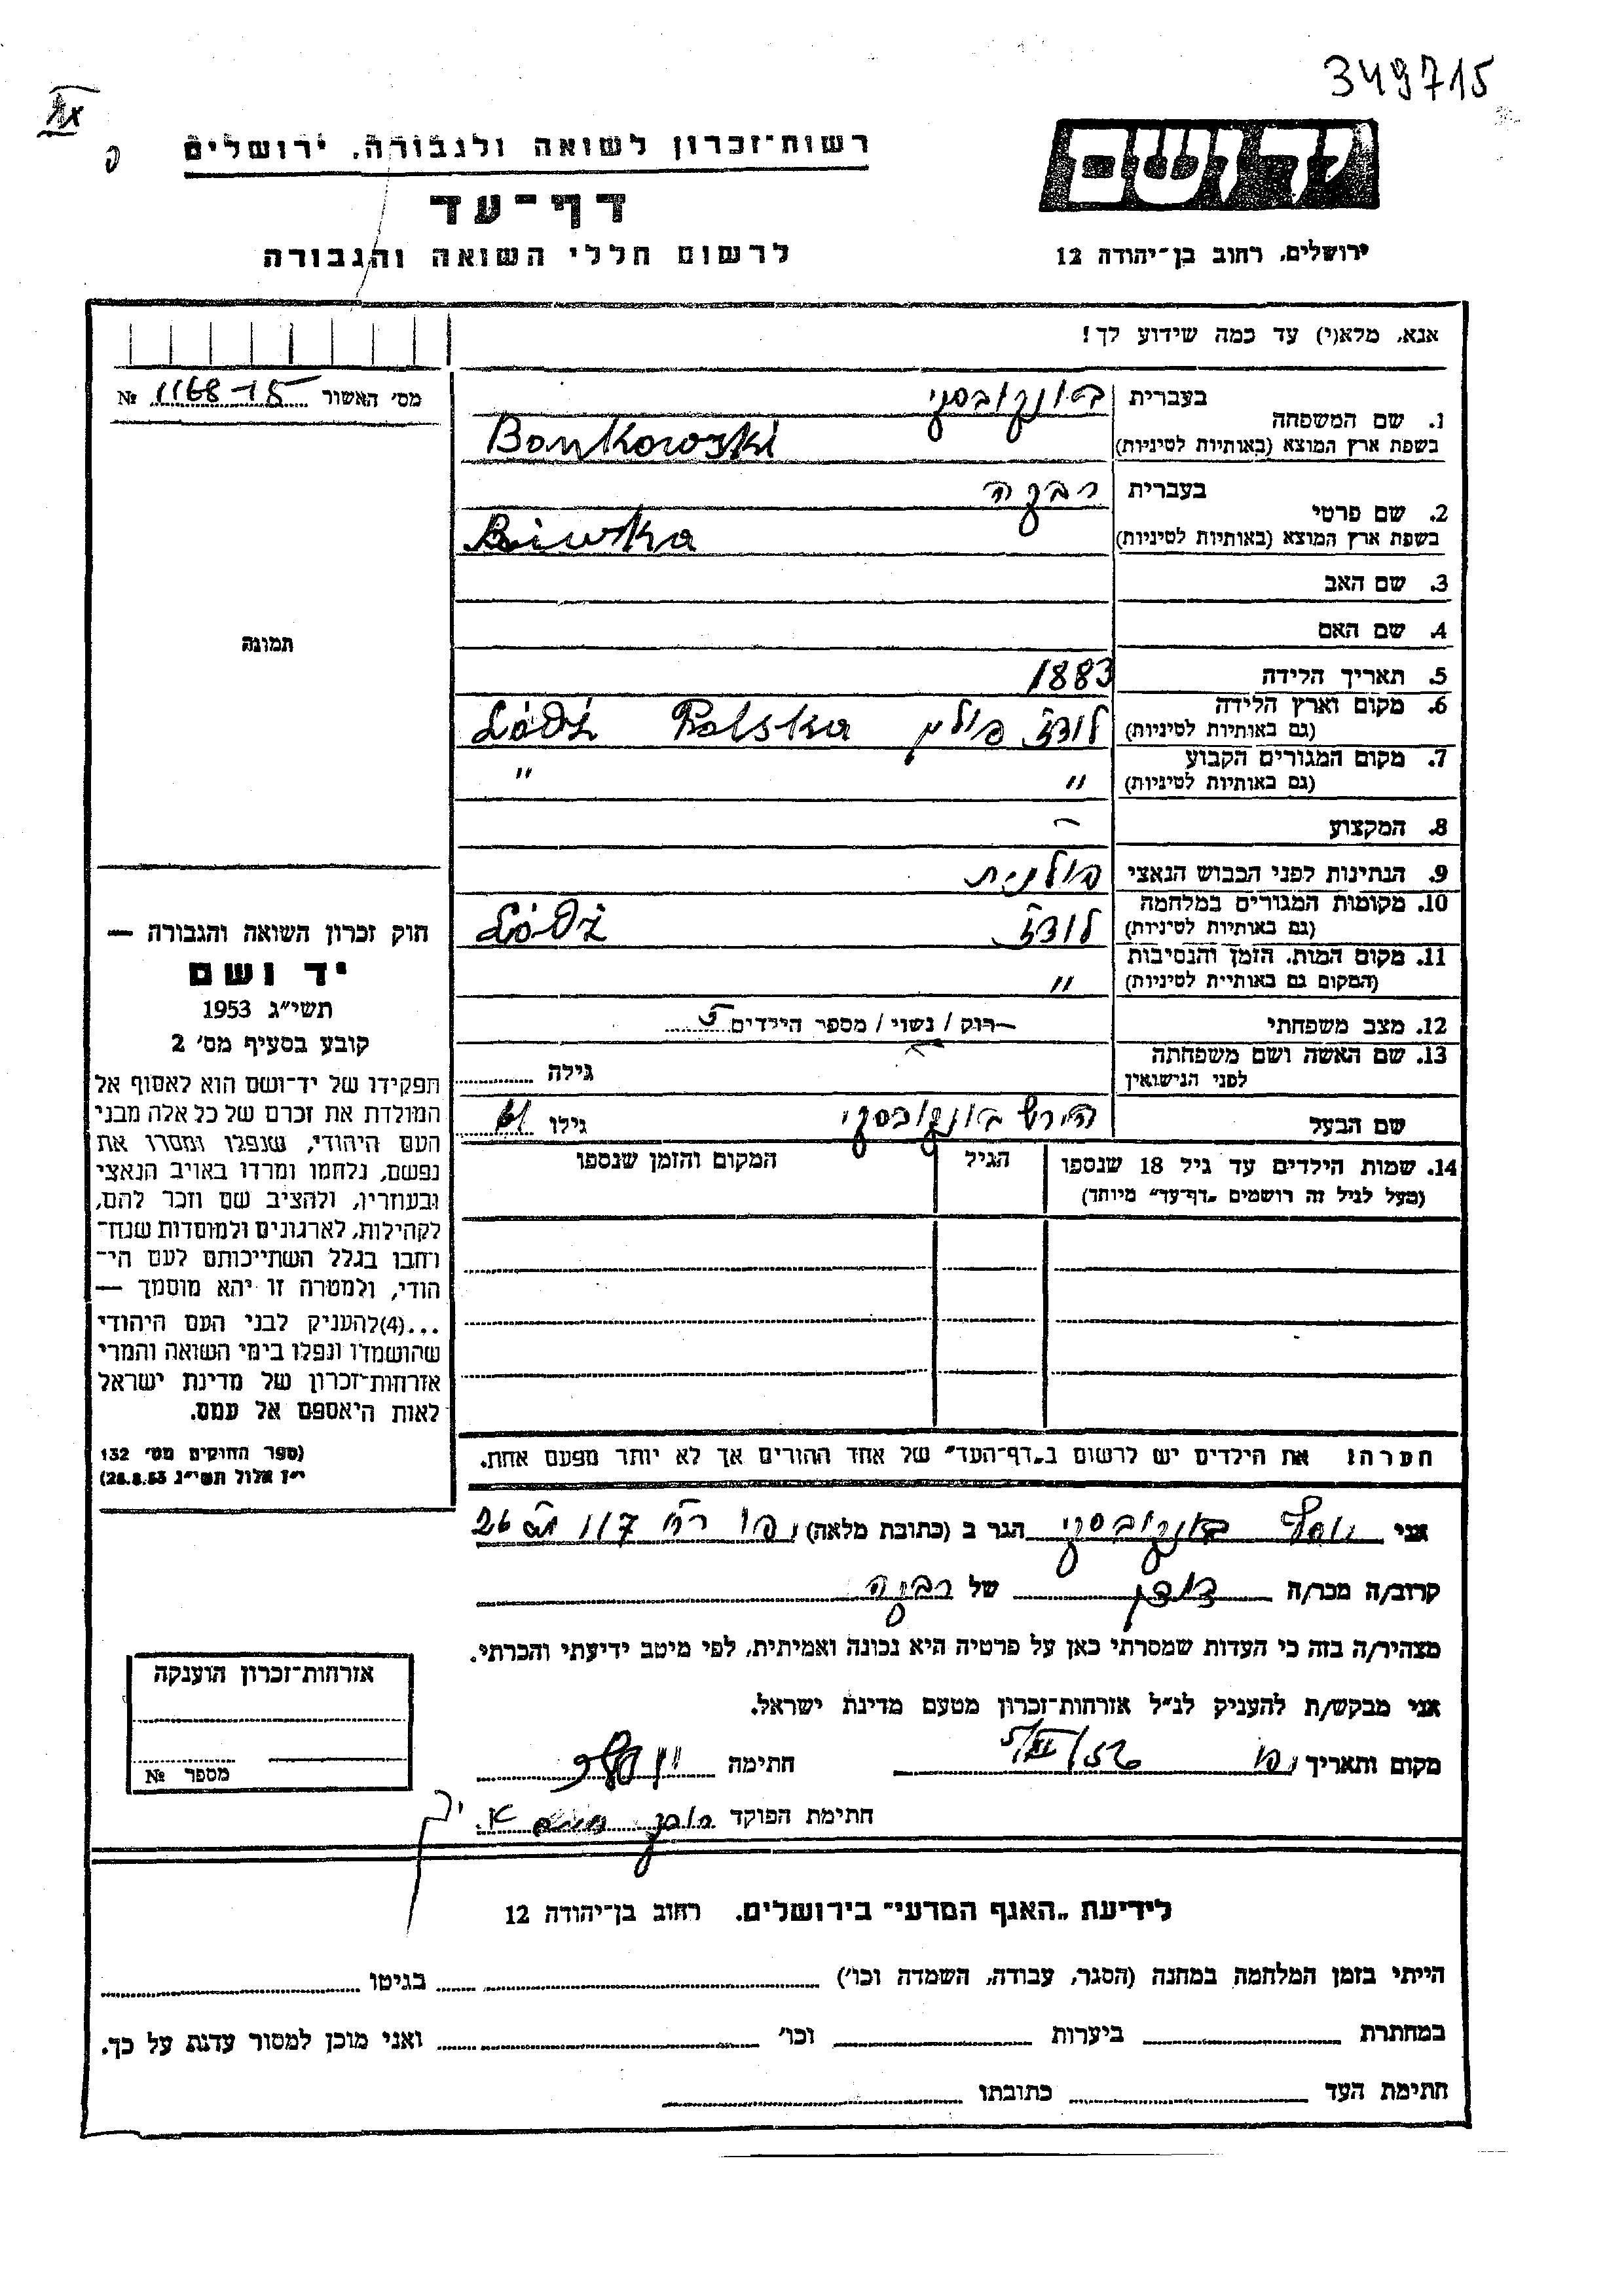 349715
רשות־זכרון לשואה ולגבורה, ירושלים
ידושם
דף־עד
לרשום חללי השואה והגבורה
ירושלים, רחוב בן־יהודה 12
אנא, מלא(י) עד כמה שידוע לך!
מס׳ האשור 1168-15 №
1. שם המשפחה
בעברית בונקובסקי
בשפת ארץ המוצא (באותיות לטיניות) Bonkowski
2. שם פרטי
בעברית רבקה
בשפת ארץ המוצא (באותיות לטיניות) Riwka
3. שם האב
4. שם האם
תמונה
5. תאריך הלידה 1883
6. מקום וארץ הלידה
(גם באותיות לטיניות) לודז פולין Polska Łódź
7. מקום המגורים הקבוע
(גם באותיות לטיניות) " "
8. המקצוע -
9. הנתינות לפני הכבוש הנאצי פולנית
10. מקומות המגורים במלחמה
(גם באותיות לטיניות) לודז Łódź
11. מקום המות, הזמן והנסיבות
(המקום גם באותיית לטיניות) "
12. מצב משפחתי רוק / נשוי / מספר הילדים 5
13. שם האשה ושם משפחתה
לפני הנישואין גילה
שם הבעל הירש בונקובסקי גילו 61
14. שמות הילדים עד גיל 18 שנספו
(מעל לגיל זה רושמים „דף־עד" מיוחד)
הגיל
המקום והזמן שנספו
חוק זכרון השואה והגבורה —
יד ושם
תשי״ג 1953
קובע בסעיף מס׳ 2
תפקידו של יד־ושם הוא לאסוף אל
המולדת את זכרם של כל אלה מבני
העם היהודי, שנפלו ומסרו את
נפשם, נלחמו ומרדו באויב הנאצי
ובעוזריו, ולהציב שם וזכר להם,
לקהילות, לארגונים ולמוסדות שנח־
רחבו בגלל השתייכותם לעם הי־
הודי, ולמטרה זו יהא מוסמך —
...(4)להעניק לבני העם היהודי
שהושמדו ונפלו בימי השואה והמרי
אזרחות־זכרון של מדינת ישראל
לאות היאספם אל עמם.
(ספר החוקים מס׳ 132
י״ז אלול תשי״ג 28.8.53)
הערהו את הילדים יש לרשום ב„דף־העד" של אחד ההורים אך לא יותר מפעם אחת.
אני יוסף בונקובסקי הגר ב (כתובת מלאה) יפו 117 26
קרוב/ה מכר/ה דודן של רבקה
מצהיר/ה בזה כי העדות שמסרתי כאן על פרטיה היא נכונה ואמיתית, לפי מיטב ידיעתי והכרתי.
אני מבקש/ת להעניק לנ״ל אזרחות־זכרון מטעם מדינת ישראל.
מקום ותאריך יפו חתימה
חתימת הפוקד
אזרחות־זכרון הוענקה
מספר №
לידיעת „האגף המדעי" בירושלים, רחוב בן־יהודה 12
הייתי בזמן המלחמה במחנה (הסגר, עבודה, השמדה וכו׳) בגיטו
במחתרת ביערות וכו׳ ואני מוכן למסור עדות על כך.
חתימת העד כתובתו